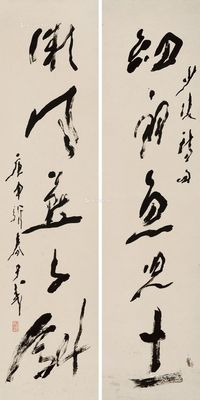 細雨魚兒出
少陵詩句
微風燕子斜
庚申春